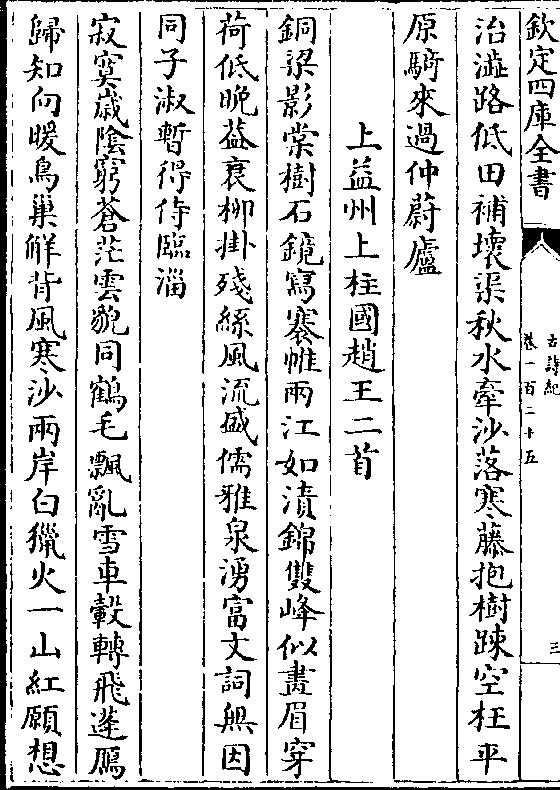 欽定四庫全書
古詩紀
卷一百二十五
三
治澁路低田補壞渠秋水牽沙落寒藤抱樹踈空枉平
原騎來過仲蔚廬
上益州上柱國趙王二首
銅梁影棠樹石鏡寫褰帷兩江如漬錦雙峰似畫眉穿
荷低晩葢衰栁掛殘絲風流盛儒雅泉湧富文詞無因
同子淑暫得侍臨淄
寂寞歲隂窮蒼茫雲貌同鶴毛飄亂雪車轂轉飛蓬鴈
歸知向暖鳥巢解背風寒沙兩岸白獵火一山紅願想